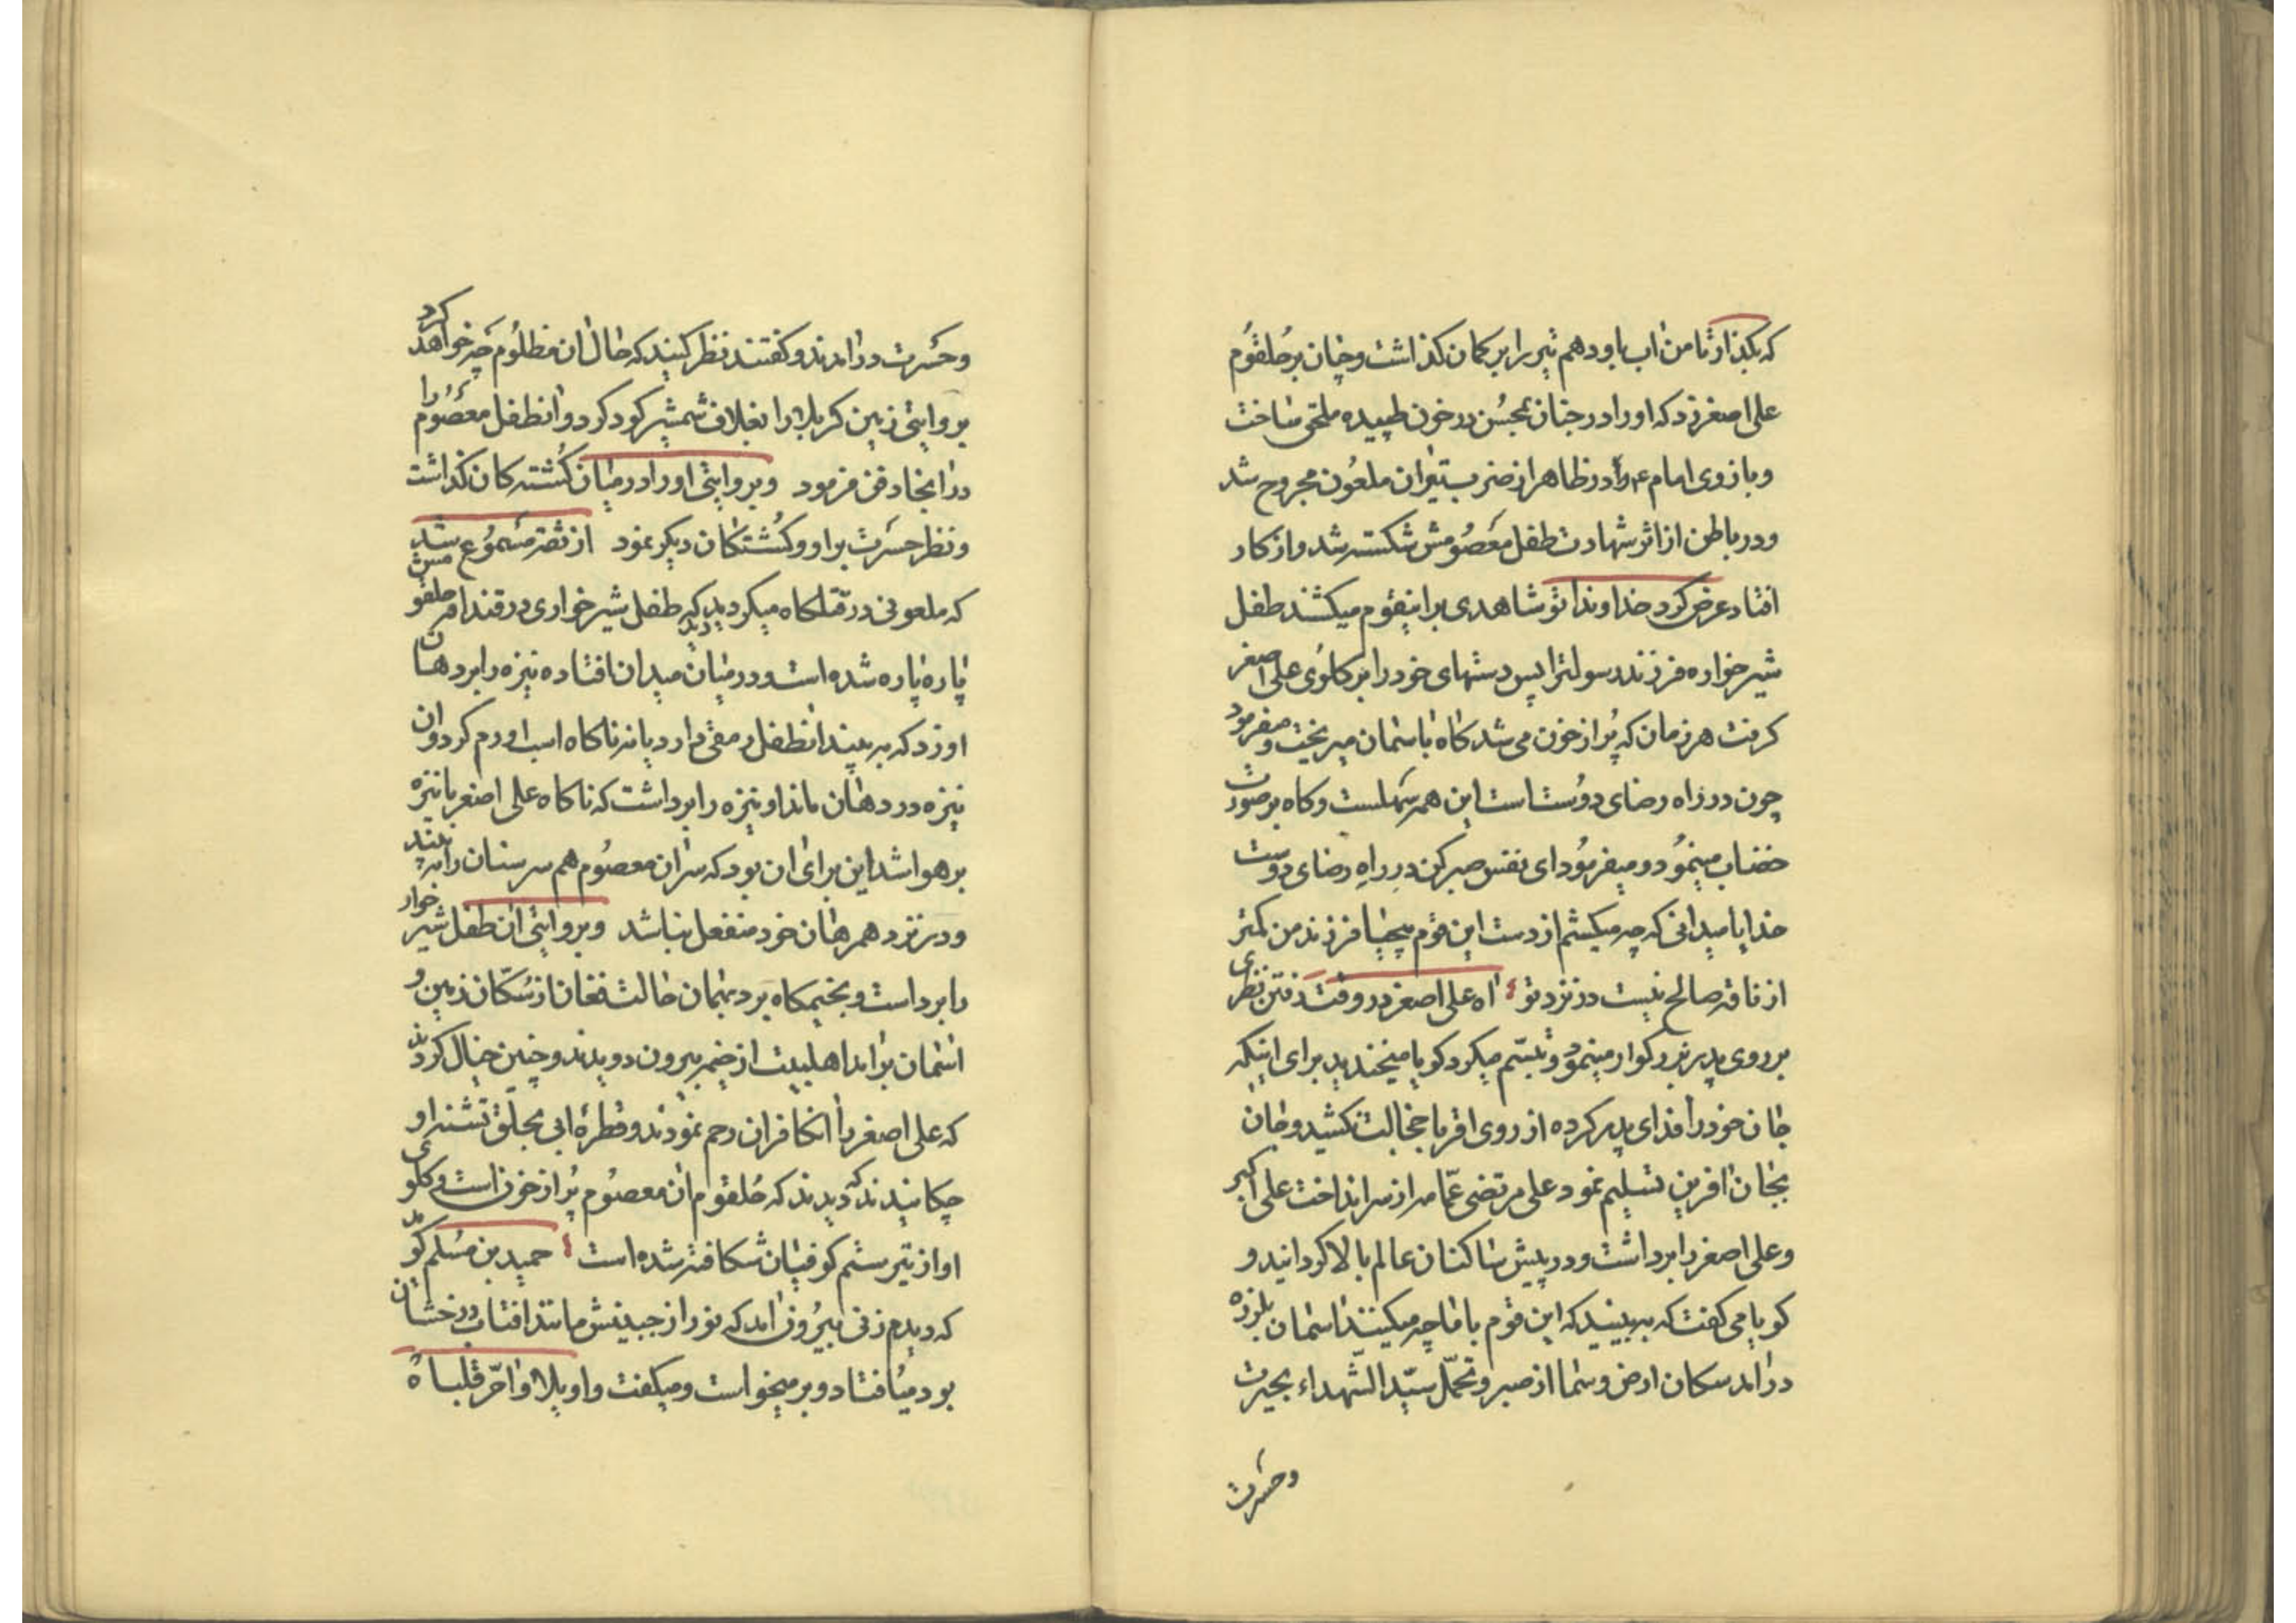 که بگذار تا من اب باو دهم تیر را بر کمان کذاشت و چنان بر حلقوم
علی اصغر زد که او را در جنان بمحسن در خون طپیده ملحق ساخت
و بازوی امام ع را در ظاهر از ضربت تیر ان ملعون مجروح شد
و در باطن از اثر شهادت طفل معصومش شکسته شد و از کار
افتاد عرض کرد خداوندا تو شاهدی بر اینقوم میکشند طفل
شیرخواره فرزند رسولترا پس دستهای خود را بر کلوی علی اصغر
کرفت هر زمان که پر از خون می شد کاه باسمان میریخت و میفرمود
چون در راه رضای دوست است این همه سهلست و کاه بر صورت
خضاب مینمود و میفرمود ای نفس صبر کن در راه رضای دوست
خدایا میدانی که چه میکشم از دست این قوم بیحیا فرزند من کمتر
از ناقه صالح نیست در نزد تو اه علی اصغر در وقت رفتن نظری
بر روی پدر بزرکوار مینمود و تبسم میکرد کویا میخندید برای اینکه
جان خود را فدای پدر کرده از روی اقربا خجالت نکشید و جان
بجان افرین تسلیم نمود علی مرتضی عمامه از سر انداخت علی اکبر
و علی اصغر را برداشت و در پیش ساکنان عالم بالا کردانید و
کویا می کفت که ببینید که این قوم با ما چه میکنند اسمان بلرزه
در امد سکان ارض و سما از صبر و تحمل سید الشهداء بحیرت
وحسرت
و حسرت در امدند و کفتند نظر کنید که حال ان مظلوم چه خواهد کرد
بروایتی زمین کربلا را بغلاف شمشیر کود کرد و انطفل معصوم را
در انجا دفن فرمود و بروایتی او را در میان کشته کان کذاشت
و نظر حسرت بر او و کشتکان دیکر نمود از ثقه مسموع شد
که ملعونی در قتلکاه میکردید دید که طفل شیرخواری در قنداقه حلقومش
پاره پاره شده است و در میان میدان افتاده نیزه را بر دهان
او زد که به بیند انطفل رمقی دارد یا نه ناکاه اسب او رم کرد و ان
نیزه در دهان ماند او نیزه را برداشت که ناکاه علی اصغر با نیزه
بر هوا شد این برای ان بود که سر ان معصوم هم سر سنان را به بیند
و در نزد همرهان خود منفعل نباشد و بروایتی ان طفل شیر خوار
را برداست و بخیمکاه برد بهمان حالت فغان از سکان زمین و
اسمان بر امد اهلبیت از خیمه بیرون دویدند و چنین خیال کردند
که علی اصغر را انکافران رحم نمودند و قطرهٔ ابی بحلق تشنه او
چکانیدند که دیدند که حلقوم ان معصوم پر از خون است و کلوی
او از تیر ستم کوفیان شکافته شده است حمید بن مسلم کوید
که دیدم زنی بیرون امد که نور از جبینش مانند افتاب درخشان
بود میافتاد و بر میخواست و میکفت واویلاه واحر قلباه